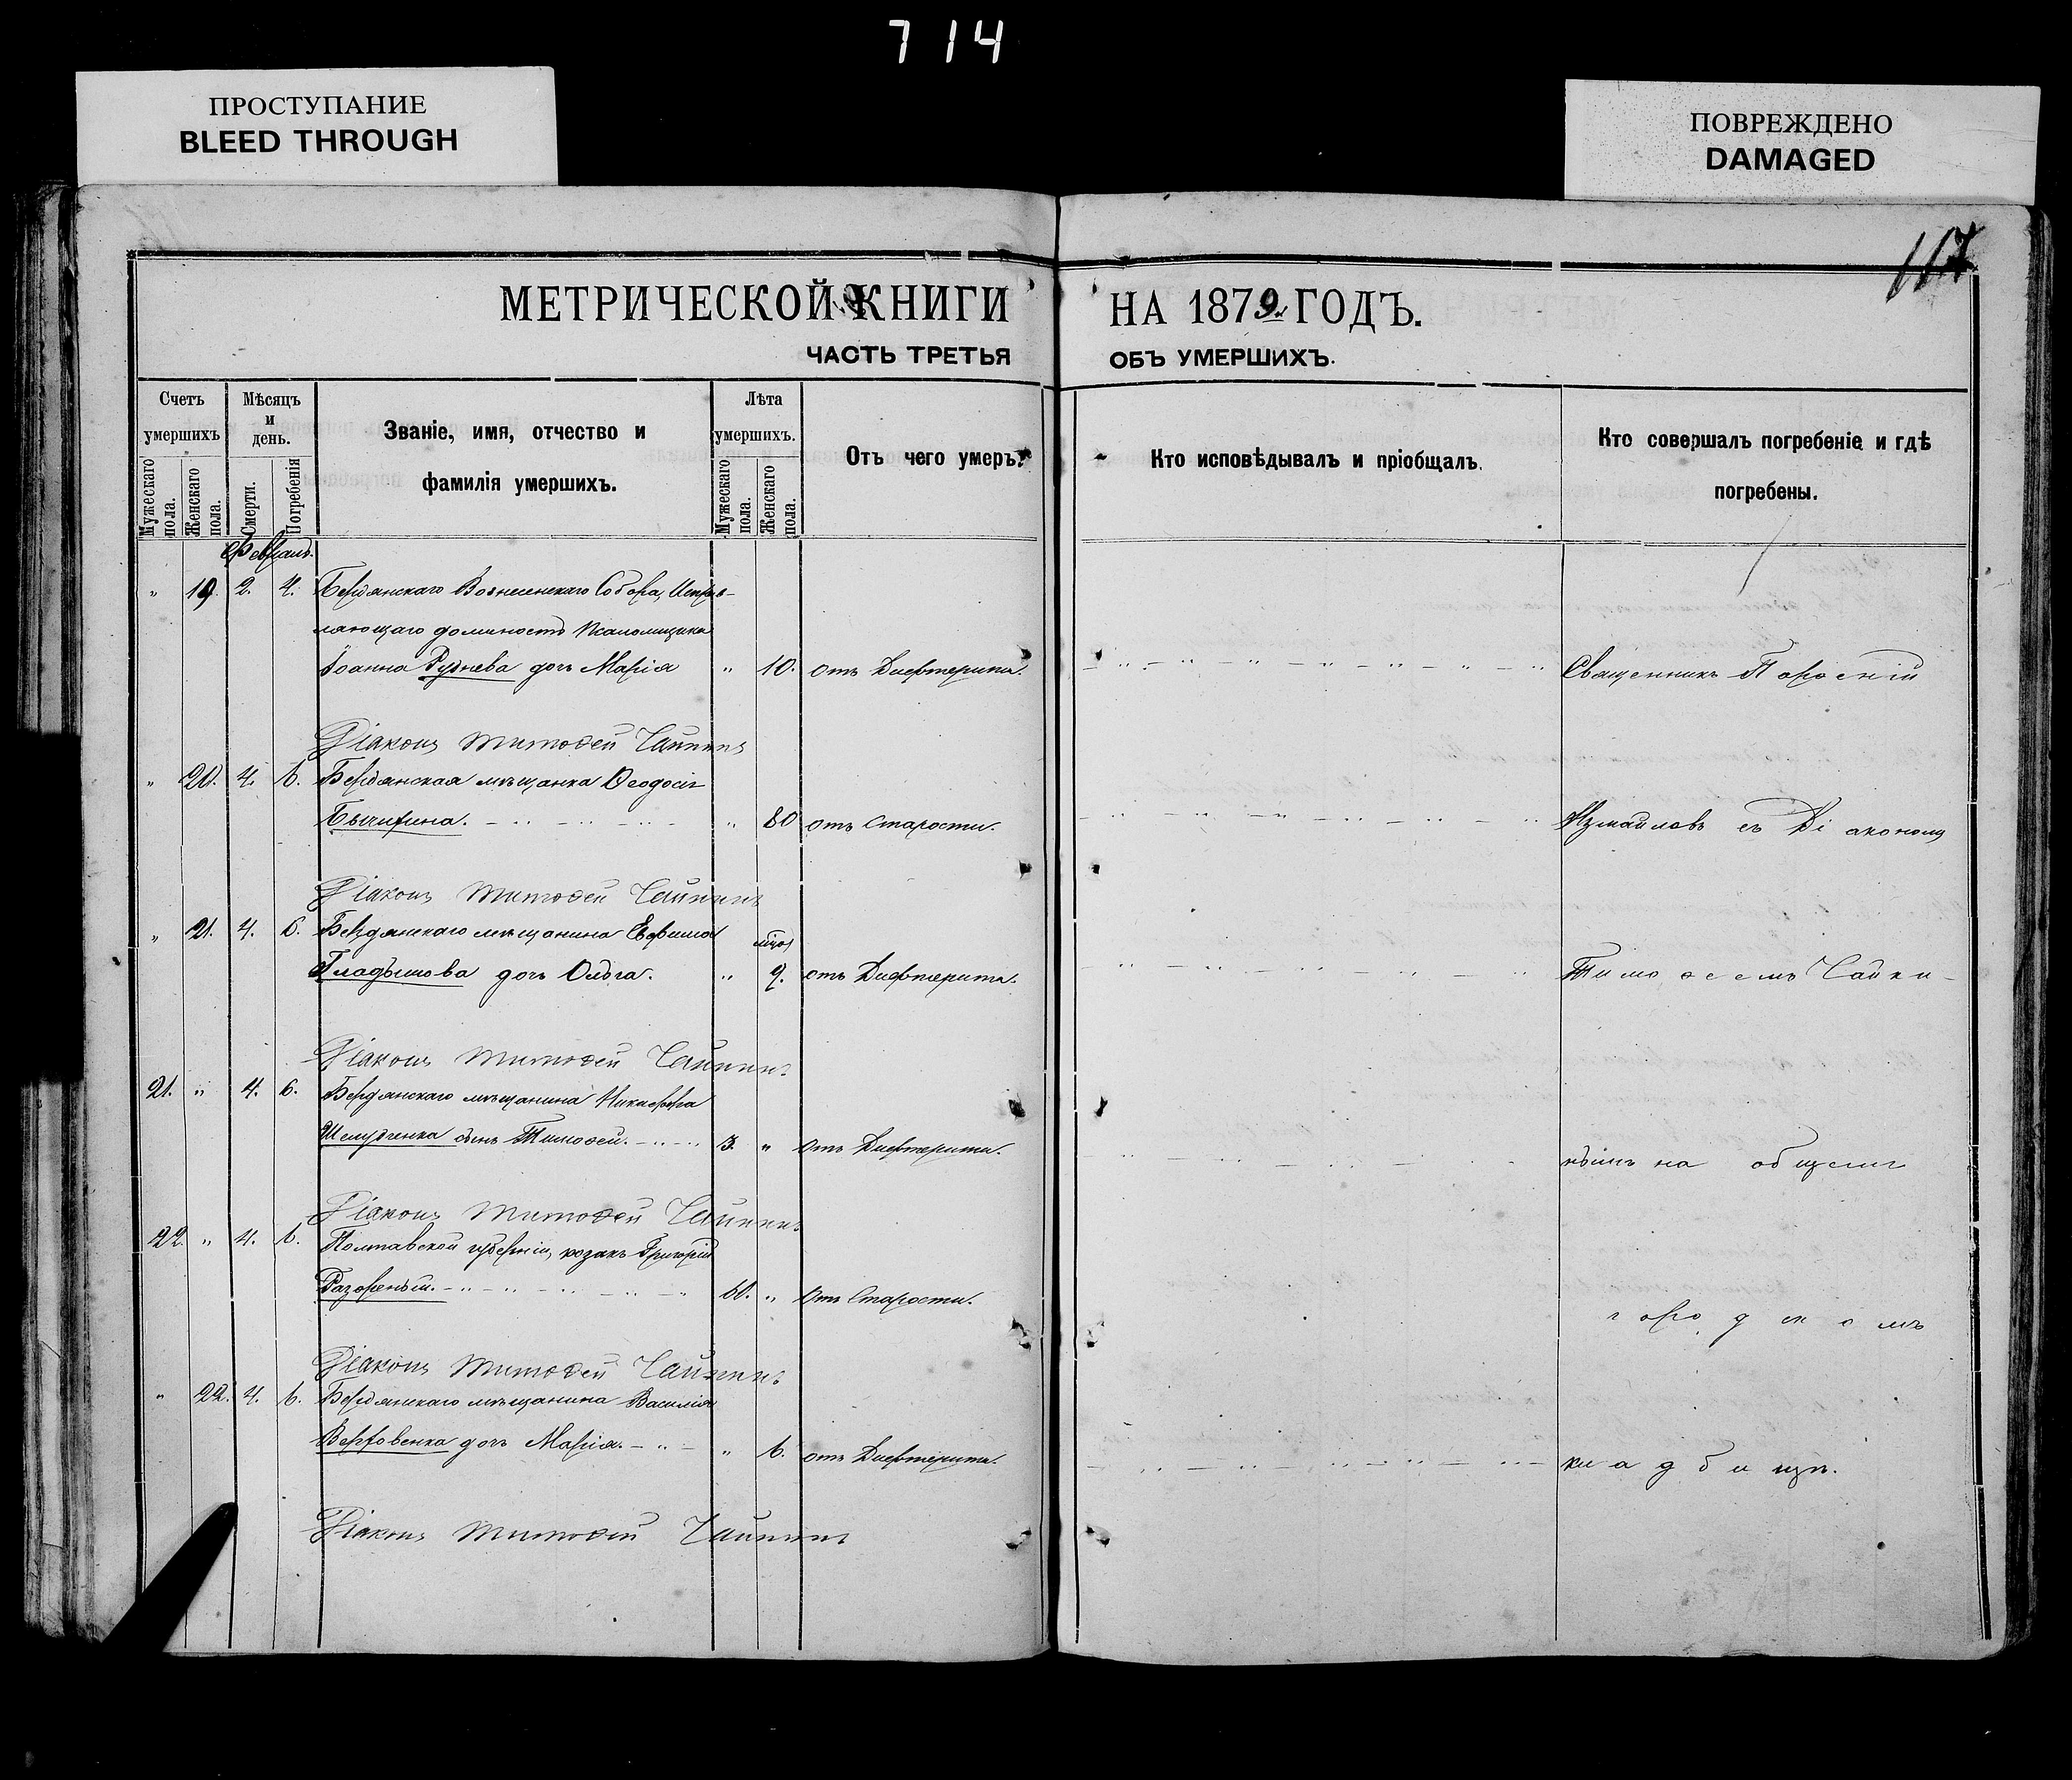 714
ПРОСТУПАНИЕ
BLEED THROUGH
ПОВРЕЖДЕНО
DAMAGED
117
МЕТРИЧЕСКОЙ КНИГИ НА 1879 ГОДЪ.
ЧАСТЬ ТРЕТЬЯ ОБЪ УМЕРШИХЪ.
Счетъ умершихъ
Мужескаго пола.
Женскаго пола.
Мѣсяцъ и день.
Смерти.
Погребенія
Званіе, имя, отчество и
фамилія умершихъ.
Лѣта умершихъ.
Мужескаго пола.
Женскаго пола.
Отъ чего умеръ?
Кто исповѣдывалъ и пріобщалъ.
Кто совершалъ погребеніе и гдѣ
погребены.
Февраль.
" 19. 2. 4. Бердянскаго Вознесенскаго Собора, Исправ-
ляющаго должность Псаломщика
Іоанна Руднева дочь Марія " 10. отъ Дифтерита. Священникъ
Діаконъ Тимоѳей Чайкинъ
" 20. 4. 6. Бердянская мѣщанка Ѳеодосія
" 80 отъ Старости. Измаиловъ съ Діакономъ
Діаконъ Тимоѳей Чайкинъ
" 21. 4. 6. Бердянскаго мѣщанина Евфима
Гладышова дочь Ольга. " 9. отъ Дифтерита. Тимоѳеемъ Чайки-
Діаконъ Тимоѳей Чайкинъ
21. " 4. 6. Бердянскаго мѣщанина Никифора
Шелудченка сынъ Тимоѳей. 3. " отъ Дифтерита. нымъ на общемъ
Діаконъ Тимоѳей Чайкинъ
22. " 4. 6. Полтавской губерніи, козакъ Григорій
Разореный. " отъ Старости. городскомъ
Діаконъ Тимоѳей Чайкинъ
" 22. 4. 6. Бердянскаго мѣщанина Василія
Вербовенка дочь Марія. " 6. отъ Дифтерита. кладбищѣ.
Діаконъ Тимоѳей Чайкинъ